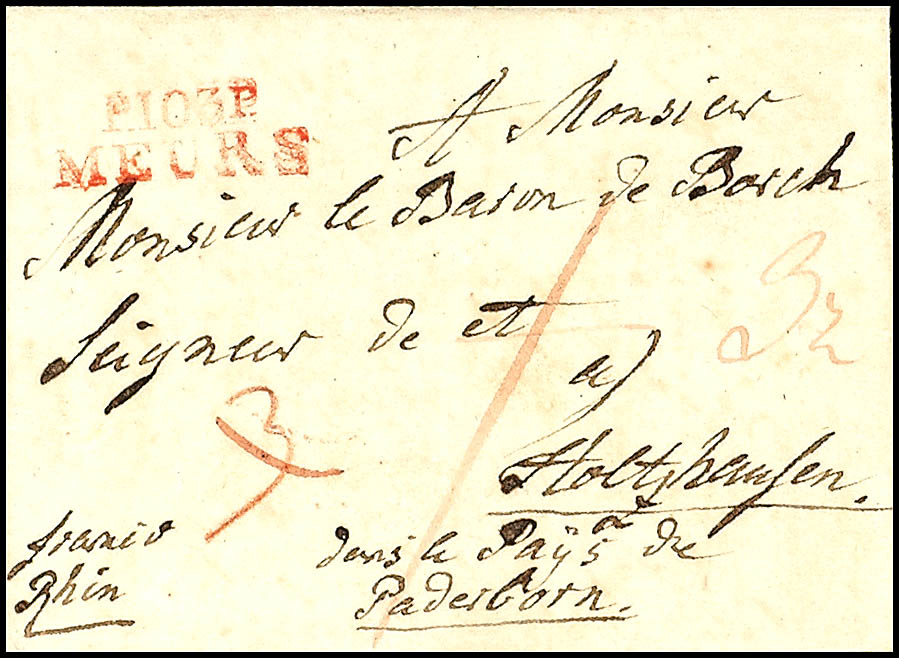 P.103.P.
MEURS
A Monsieur
Monsieur le Baron de Borch
Seigneur de et
a
Holtzhausen.
dans le Paÿs de
Paderborn.
franco
Rhin
3